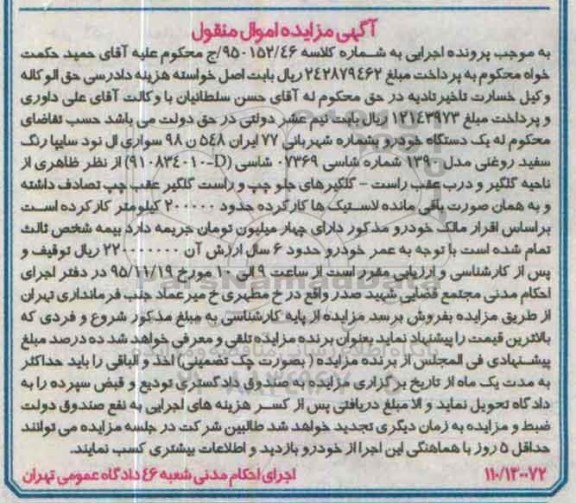 آگهی مزایده اموال منقول
به موجب پرونده اجرایی به شماره کلاسه ۹۵۰۱۵۲/۴۶/ج محکوم علیه آقای حمید حکمت
خواه محکوم به پرداخت مبلغ ۲۴۲۸۷۹۴۶۲ ریال بابت اصل خواسته هزینه دادرسی حق الوکاله
وکیل خسارت تاخیر تادیه در حق محکوم له آقای حسن سلطانیان با وکالت آقای علی داوری
و پرداخت مبلغ ۱۲۱۴۳۹۷۳ ریال بابت نیم عشر دولتی در حق دولت می باشد حسب تقاضای
محکوم له یک دستگاه خودرو بشماره شهربانی ۷۷ ایران ۵۴۸ ن ۹۸ سواری ال نود سایپا رنگ
سفید روغنی مدل ۱۳۹۰ شماره شاسی ۰۷۳۶۹ شاسی (D-۹۱۰۸۳۴۰۱۰) از نظر ظاهری از
ناحیه گلگیر و درب عقب راست - گلگیرهای جلو چپ و راست گلگیر عقب چپ تصادف داشته
و به همان صورت باقی مانده لاستیک ها کارکرده حدود ۲۰۰۰۰۰ کیلومتر کارکرده است
براساس اقرار مالک خودرو مذکور دارای چهار میلیون تومان جریمه دارد بیمه شخص ثالث
تمام شده است با توجه به عمر خودرو حدود ۶ سال ارزش آن ۲۲۰۰۰۰۰۰۰ ریال توقیف و
پس از کارشناسی و ارزیابی مقرر است از ساعت ۹ الی ۱۰ مورخ ۹۵/۱۱/۱۹ در دفتر اجرای
احکام مدنی مجتمع قضایی شهید صدر واقع در خ مطهری خ میرعماد جنب فرمانداری تهران
از طریق مزایده بفروش برسد مزایده از پایه کارشناسی به مبلغ مذکور شروع و فردی که
بالاترین قیمت را پیشنهاد نماید بعنوان برنده مزایده تلقی و معرفی خواهد شد ده درصد مبلغ
پیشنهادی فی المجلس از برنده مزایده (بصورت چک تضمینی) اخذ و الباقی را باید حداکثر
به مدت یک ماه از تاریخ برگزاری مزایده به صندوق دادگستری تودیع و قبض سپرده را به
دادگاه تحویل نماید و الا مبلغ دریافتی پس از کسر هزینه های اجرایی به نفع صندوق دولت
ضبط و مزایده به زمان دیگری تجدید خواهد شد طالبین شرکت در جلسه مزایده می توانند
حداقل ۵ روز با هماهنگی این اجرا از خودرو بازدید و اطلاعات بیشتری کسب نمایند.
۱۱۰/۱۲۰۰۷۲ اجرای احکام مدنی شعبه ۴۶ دادگاه عمومی تهران
ParsNamadData